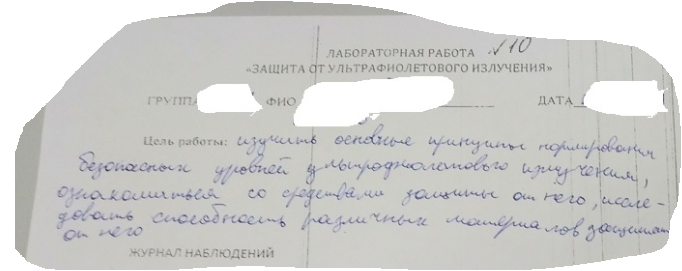 ЛАБОРАТОРНАЯ РАБОТА №10
«ЗАЩИТА ОТ УЛЬТРАФИОЛЕТОВОГО ИЗЛУЧЕНИЯ»
ГРУППА ФИО ДАТА
Цель работы: изучить основные принципы нормирования
безопасных уровней излучения,
ознакомиться со средствами защиты от него, иссле-
довать способность различных материалов защищать
от него
ЖУРНАЛ НАБЛЮДЕНИЙ